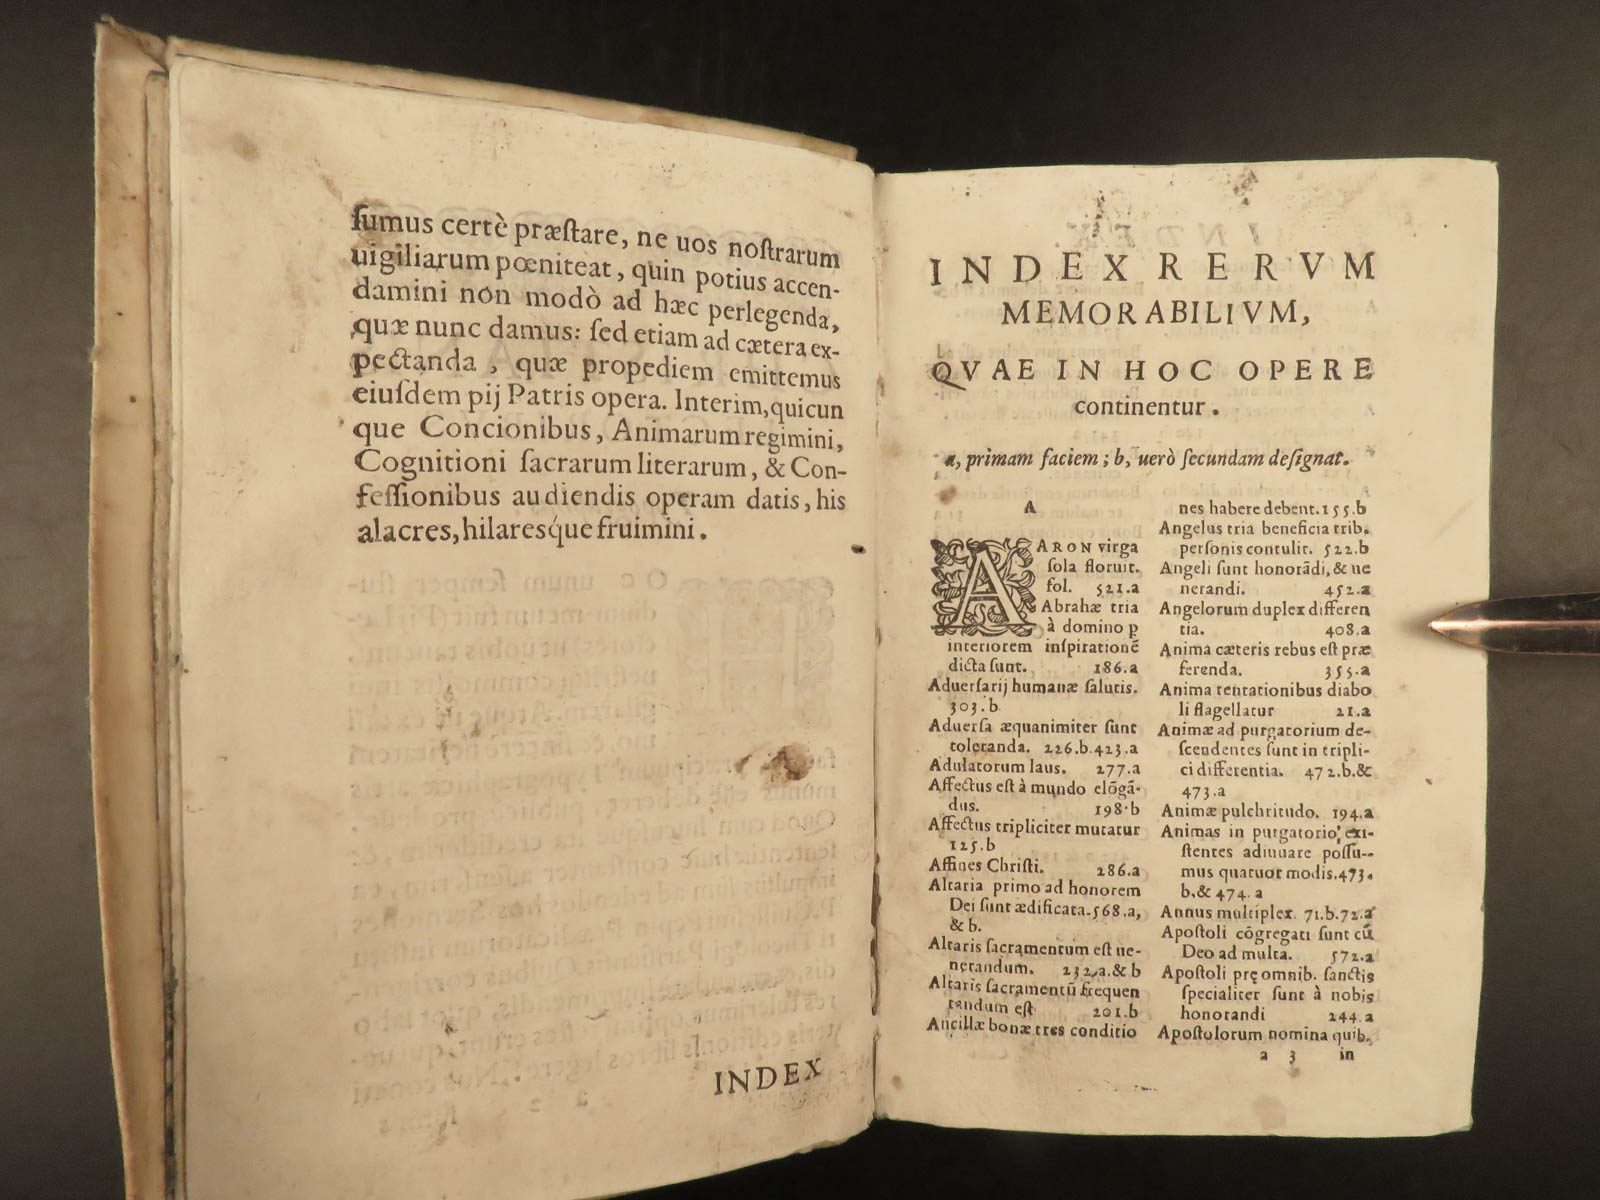 ſumus certè præſtare, ne uos noſtrarum
uigiliarum pœniteat, quin potius accen-
damini non modò ad hæc perlegenda,
quæ nunc damus: ſed etiam ad cætera ex-
pectanda, quæ propediem emittemus
eiuſdem pij Patris opera. Interim, quicun
que Concionibus, Animarum regimini,
Cognitioni ſacrarum literarum, & Con-
feſſionibus audiendis operam datis, his
alacres, hilaresq́ue fruimini.
INDEX
INDEX RERVM
MEMORABILIVM,
QVAE IN HOC OPERE
continentur.
a, primam faciem; b, uerò ſecundam deſignat.
A
AARON virga
ſola floruit.
fol. 521.a
Abrahæ tria
à domino p
interiorem inſpirationẽ
dicta ſunt. 186.a
Aduerſarij humanæ ſalutis.
303.b
Aduerſa æquanimiter ſunt
toleranda. 226.b.423.a
Adulatorum laus. 277.a
Affectus eſt à mundo elõgã-
dus. 198.b
Affectus tripliciter mutatur
125.b
Affines Chriſti. 286.a
Altaria primo ad honorem
Dei ſunt ædificata. 568.a,
& b.
Altaris ſacramentum eſt ue-
nerandum. 232.a.& b
Altaris ſacramentũ frequen
tandum eſt 201.b
Ancillæ bonæ tres conditio
nes habere debent. 155.b
Angelus tria beneficia trib.
perſonis contulit. 522.b
Angeli ſunt honorãdi, & ue
nerandi. 452.a
Angelorum duplex differen
tia. 408.a
Anima cæteris rebus eſt præ
ferenda. 355.a
Anima tentationibus diabo
li flagellatur 21.a
Animæ ad purgatorium de-
ſcendentes ſunt in tripli-
ci differentia. 472.b.&
473.a
Animæ pulchritudo. 194.a
Animas in purgatorio exi-
ſtentes adiuuare poſſu-
mus quatuor modis. 473.
b.& 474.a
Annus multiplex. 71.b.72.a
Apoſtoli cõgregati ſunt cũ
Deo ad multa. 572.a
Apoſtoli pręomnib. ſanctis
ſpecialiter ſunt à nobis
honorandi 244.a
Apoſtolorum nomina quib.
a 3 in